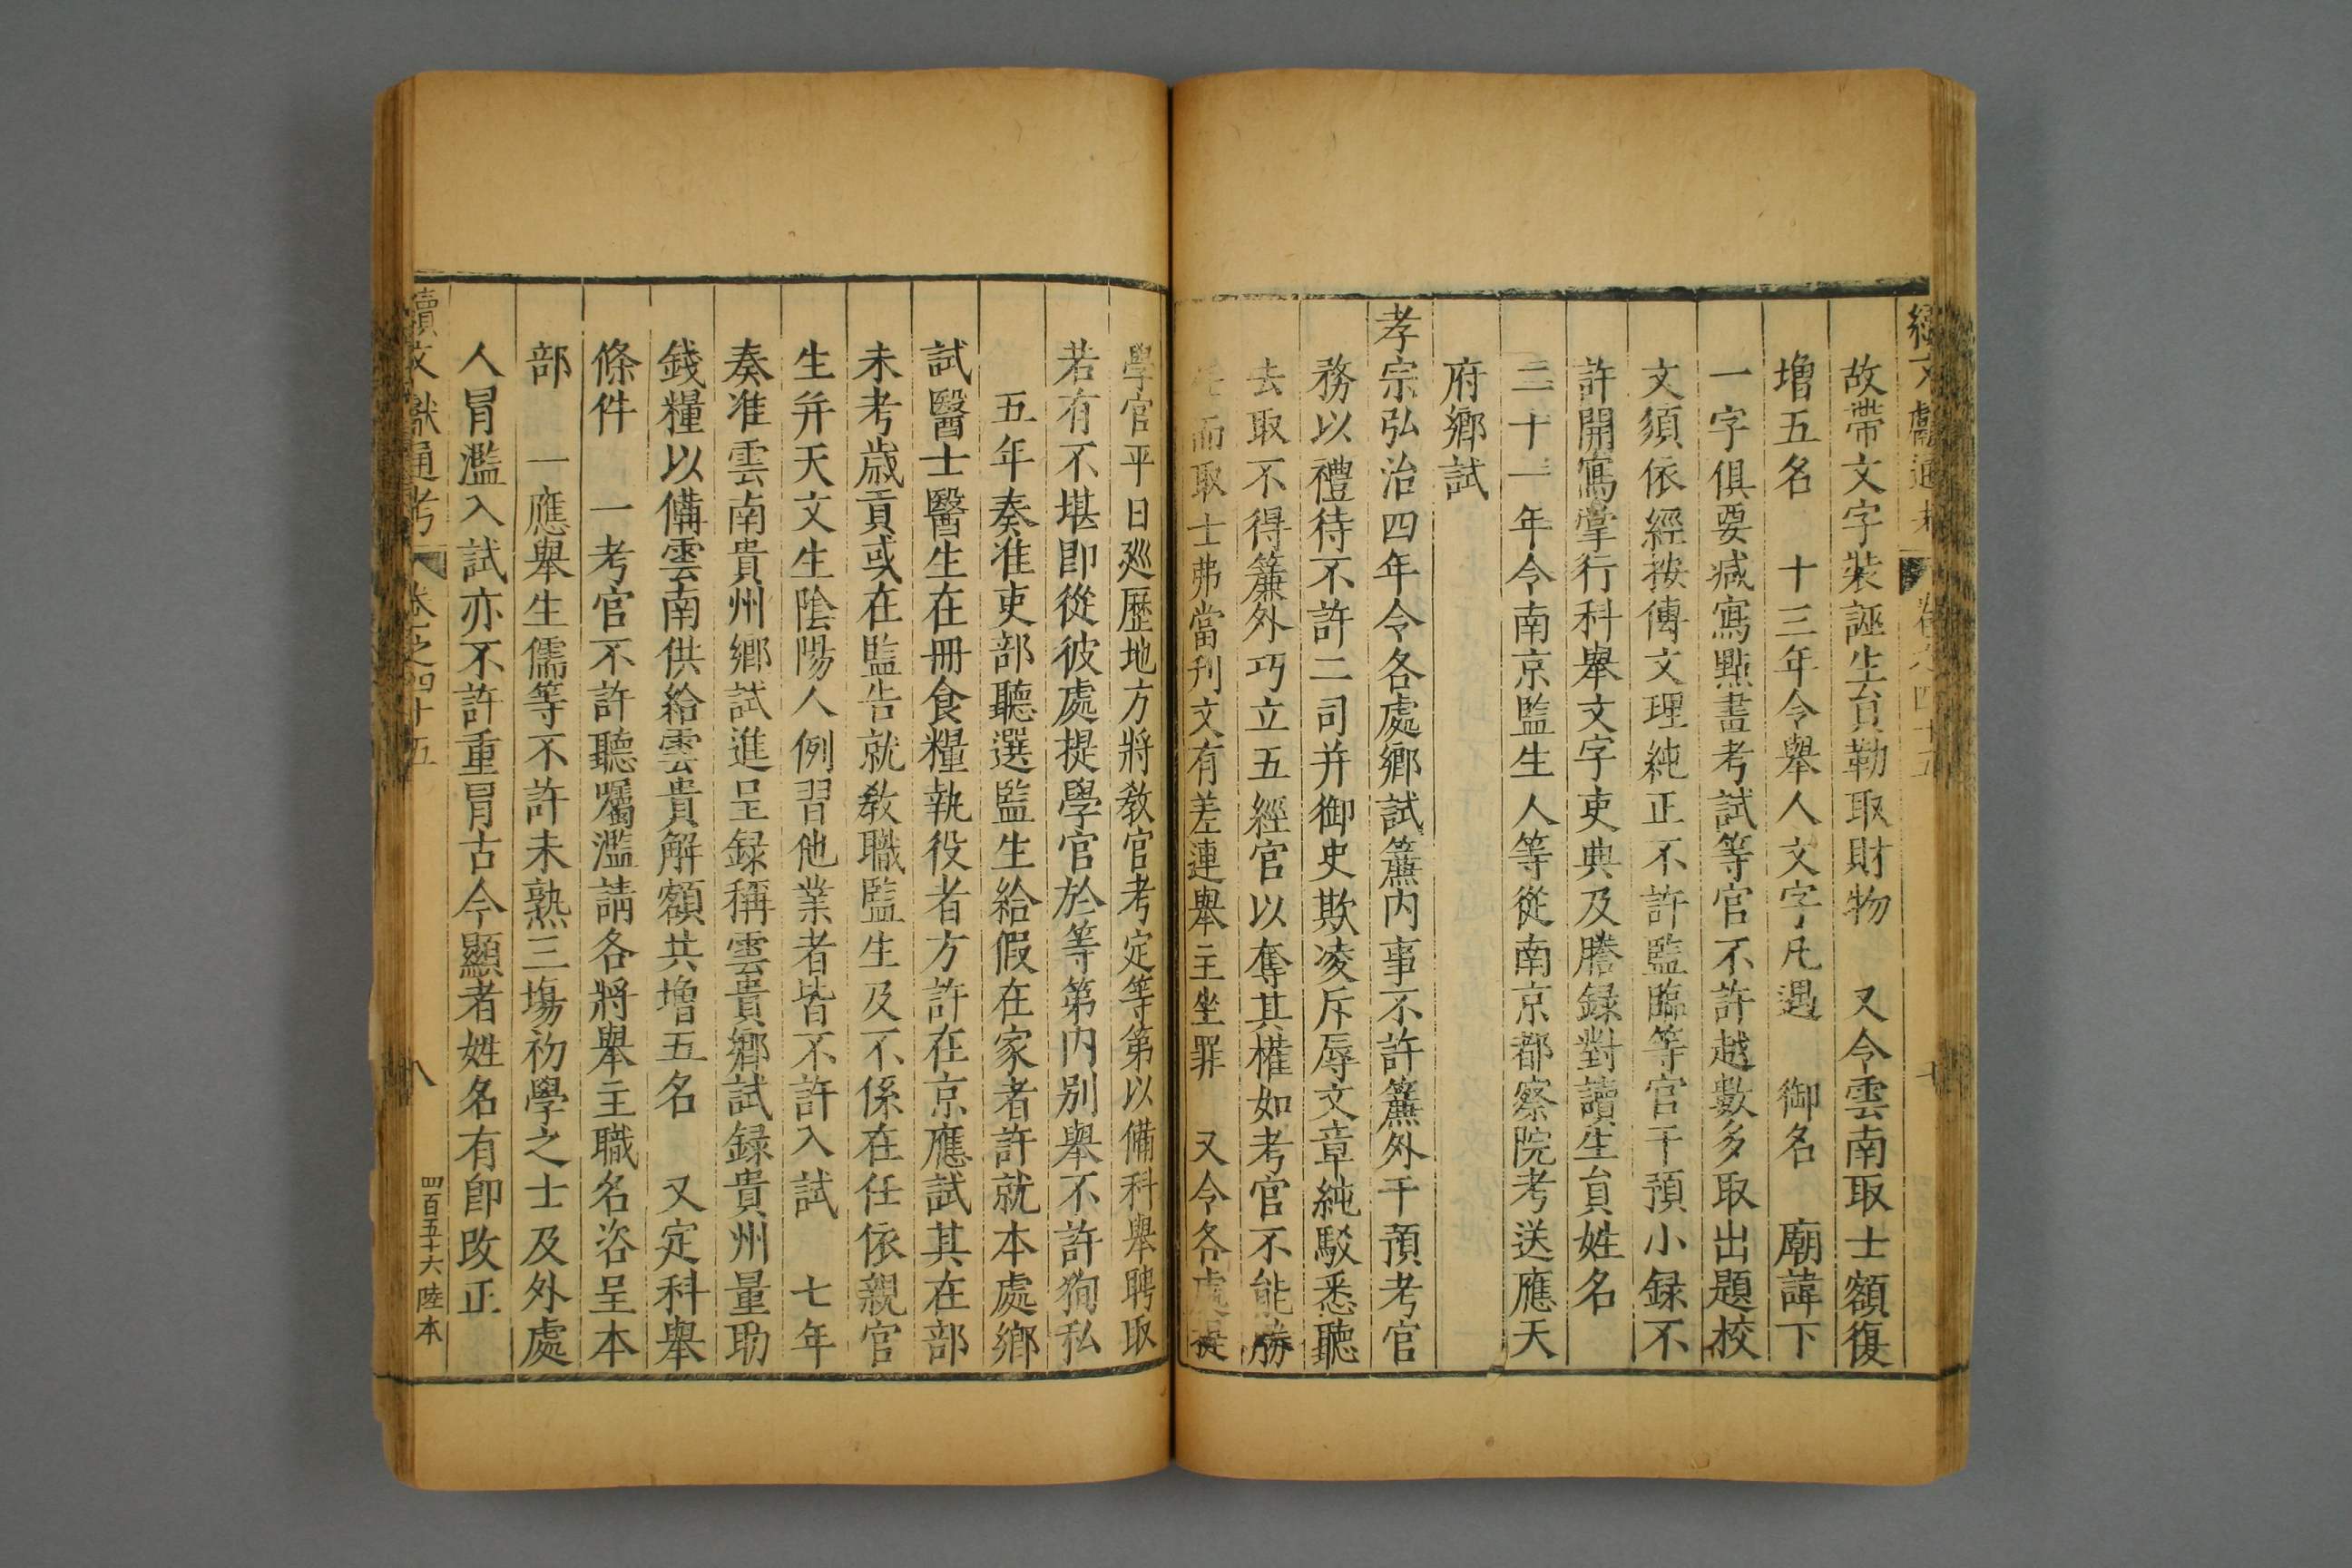 續文獻通考 卷之四十五 七
故帶文字裝誣生員勒取財物 又令雲南取士額復
增五名 十三年令舉人文字凡遇 御名 廟諱下
一字俱要減寫點畫考試等官不許越數多取出題校
文須依經按傳文理純正不許監臨等官干預小録不
許開寫掌行科舉文字吏典及謄録對讀生員姓名
二十一年令南京監生人等從南京都察院考送應天
府鄉試
孝宗弘治四年令各處鄉試簾内事不許簾外干預考官
務以禮待不許二司并御史欺凌斥辱文章純駁悉聽
去取不得簾外巧立五經官以奪其權如考官不能勝
任而取士弗當刋文有差連舉主坐罪 又令各處提
學官平日廵歷地方將敎官考定等第以備科舉聘取
若有不堪即從彼處提學官於等第内别舉不許狥私
五年奏准吏部聽選監生給假在家者許就本處鄉
試醫士醫生在冊食糧執役者方許在京應試其在部
未考歳貢或在監告就敎職監生及不係在任依親官
生并天文生陰陽人例習他業者皆不許入試 七年
奏准雲南貴州鄉試進呈録稱雲貴鄉試録貴州量助
錢糧以備雲南供給雲貴解額共增五名 又定科舉
條件 一考官不許聽囑濫請各將舉主職名咨呈本
部 一應舉生儒等不許未熟三塲初學之士及外處
人冐濫入試亦不許重冐古今顯者姓名有卽改正
續文獻通考 卷之四十五 八 四百五十六 陸本